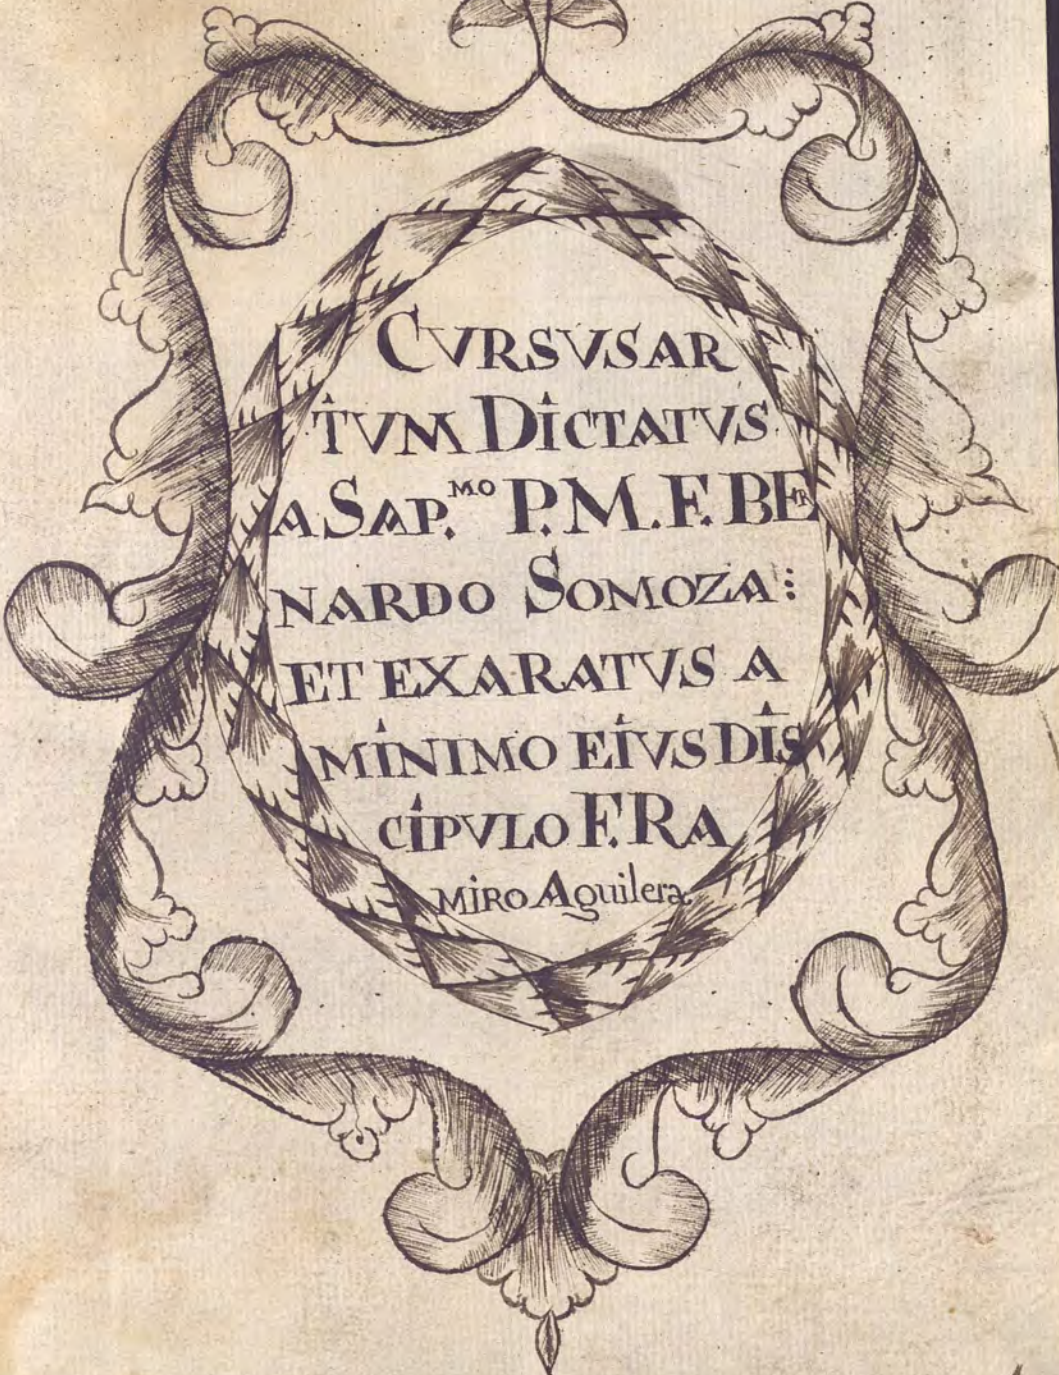 CVRSVS AR
TVM DICTATVS
A SAP.MO P. M. F. BER
NARDO SOMOZA:
ET EXARATVS A
MINIMO EIVS DIS
CIPVLO F. RA
MIRO Aguilera